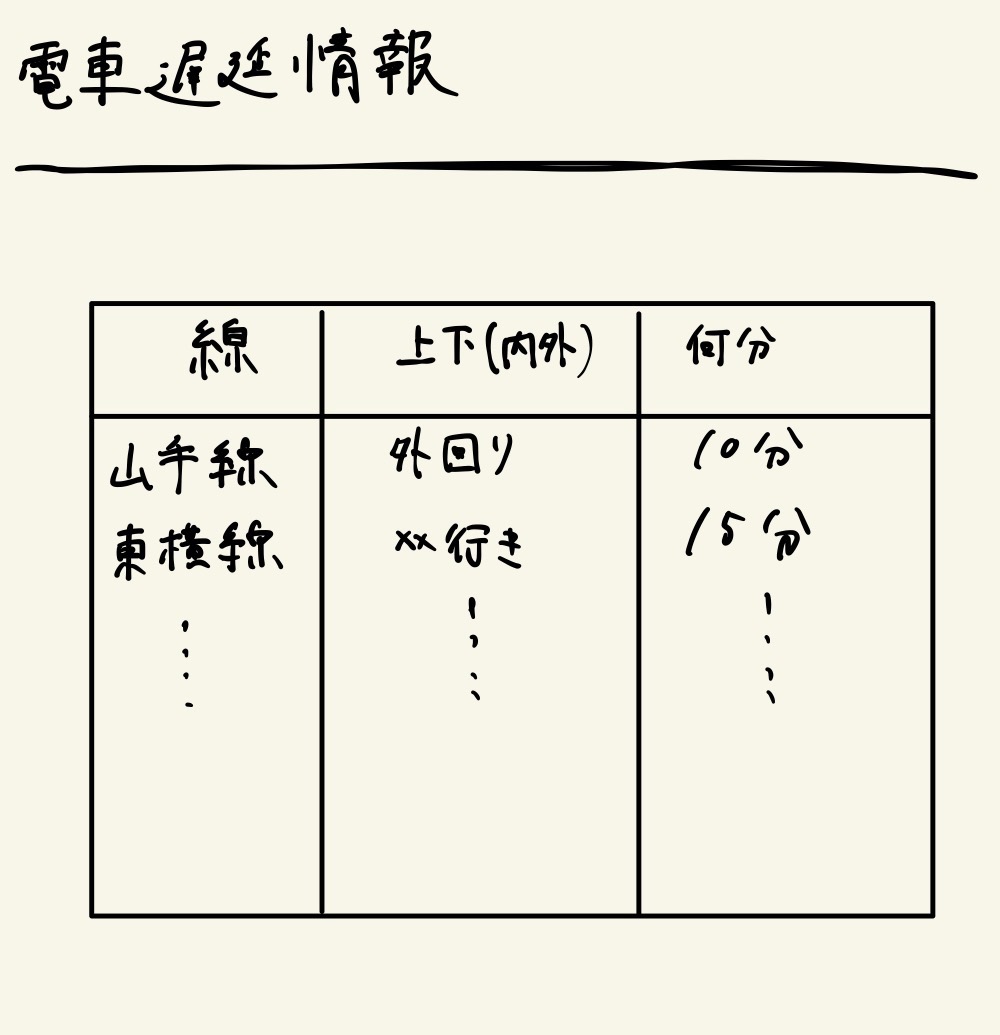 電車遅延情報
線 上下(内外) 何分
山手線 外回り 10分
東横線 xx行き 15分